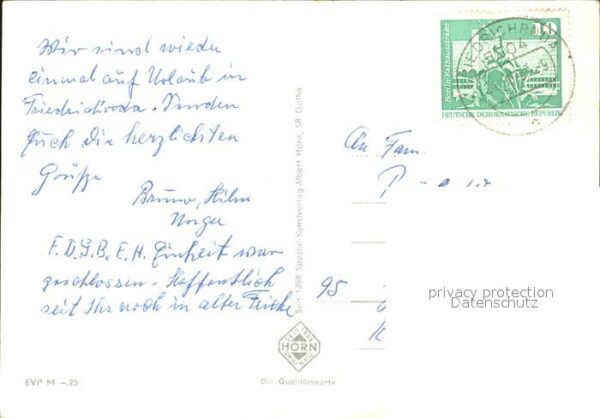 Wir sind wieder
einmal auf Urlaub in
Friedrichroda. Senden
Euch die herzlichsten
Grüße
Bruno, Hilm
Unger
F.D.G.B. E.H. Einheit war
geschlossen. Hoffentlich
seit Ihr noch in alter Frische
Seit 1898 Spezial-Kunstverlag Albert Horn, 58 Gotha
SEIT 1898
HORN
GOTHA
EVP M –.25
Die Qualitätskarte
10
Berlin, Rathausstraße
DEUTSCHE DEMOKRATISCHE REPUBLIK
FRIEDRICHRODA
An Fam.
95
privacy protection
Datenschutz